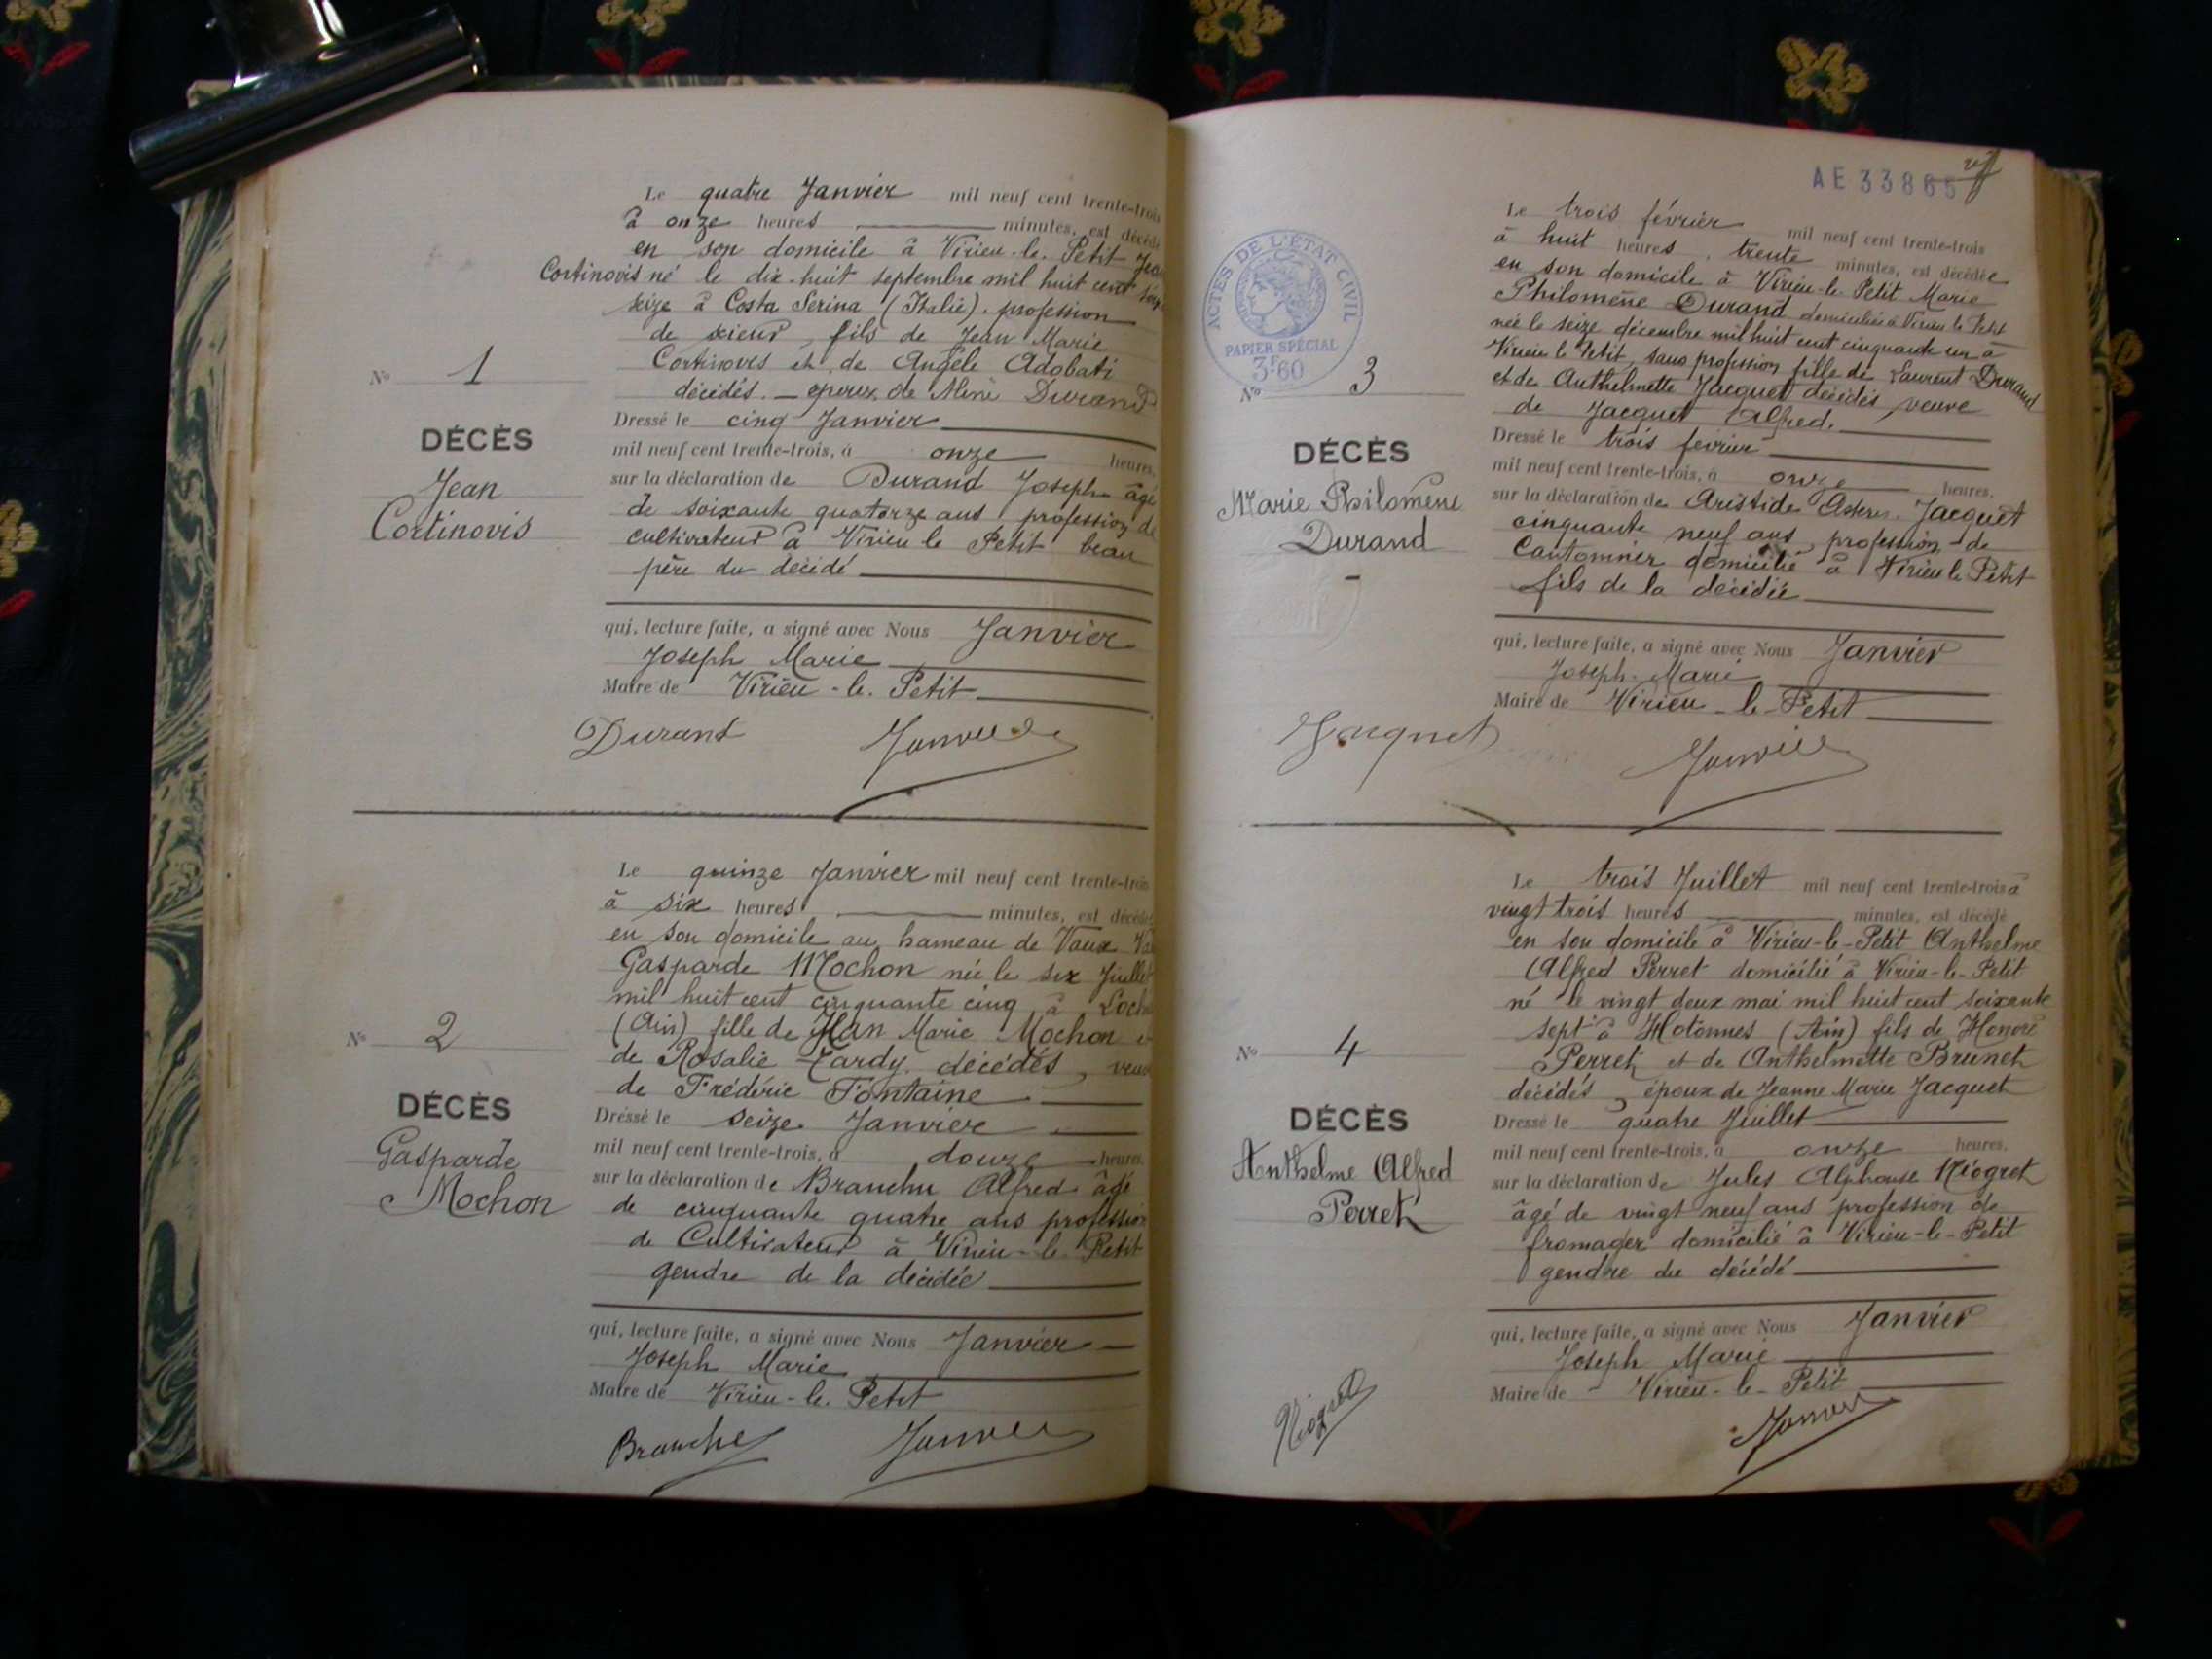 Le quatre Janvier mil neuf cent trente-trois
à onze heures minutes, est décédé
en son domicile à Virieu-le-Petit Jean
Cortinovis né le dix-huit septembre mil huit cent
seize à Costa Serina (Italie). profession
de scieur, fils de Jean Marie
Cortinovis et de Angèle Adobati
décédés. — époux de Durand
No 1
DÉCÈS
Jean
Cortinovis
Dressé le cinq Janvier
mil neuf cent trente-trois, à onze heures,
sur la déclaration de Durand Joseph âgé
de soixante quatorze ans profession de
cultivateur à Virieu le Petit beau
père du décédé
qui, lecture faite, a signé avec Nous Janvier
Joseph Marie
Maire de Virieu-le-Petit
Durand Janvier
Le quinze Janvier mil neuf cent trente-trois
à six heures minutes, est décédée
en son domicile au hameau de Vaux
Gasparde Mochon née le six Juillet
mil huit cent cinquante cinq à
(Ain) fille de Jean Marie Mochon et
de Rosalie Tardy décédés, veuve
de Frédéric Fontaine
No 2
DÉCÈS
Gasparde
Mochon
Dressé le seize Janvier
mil neuf cent trente-trois, à douze heures,
sur la déclaration de Branche Alfred âgé
de cinquante quatre ans profession
de Cultivateur à Virieu-le-Petit
gendre de la décédée
qui, lecture faite, a signé avec Nous Janvier
Joseph Marie
Maire de Virieu-le-Petit
Branche Janvier
AE 33865
ACTES DE L'ÉTAT CIVIL
PAPIER SPÉCIAL
3F60
Le trois février mil neuf cent trente-trois
à huit heures, trente minutes, est décédée
en son domicile à Virieu-le-Petit Marie
Philomène Durand domiciliée à Virieu le Petit
née le seize décembre mil huit cent cinquante un à
Virieu le Petit, sans profession fille de Laurent Durand
et de Anthelmette Jacquet décédés veuve
de Jacquet Alfred.
No 3
DÉCÈS
Marie Philomène
Durand
Dressé le trois février
mil neuf cent trente-trois, à onze heures,
sur la déclaration de Aristide Jacquet
cinquante neuf ans, profession de
Cantonnier domicilié à Virieu le Petit
fils de la décédée
qui, lecture faite, a signé avec Nous Janvier
Joseph-Marie
Maire de Virieu-le-Petit
Jacquet Janvier
Le trois Juillet mil neuf cent trente-trois à
vingt trois heures minutes, est décédé
en son domicile à Virieu-le-Petit Anthelme
Alfred Perret domicilié à Virieu-le-Petit
né le vingt deux mai mil huit cent soixante
sept à Hotonnes (Ain) fils de Honoré
Perret et de Anthelmette Brunet
décédés, époux de Jeanne Marie Jacquet
No 4
DÉCÈS
Anthelme Alfred
Perret
Dressé le quatre Juillet
mil neuf cent trente-trois, à onze heures,
sur la déclaration de Jules Alphonse Niogret
âgé de vingt neuf ans profession de
fromager domicilié à Virieu-le-Petit
gendre du décédé
qui, lecture faite, a signé avec Nous Janvier
Joseph Marie
Maire de Virieu-le-Petit
Niogret Janvier